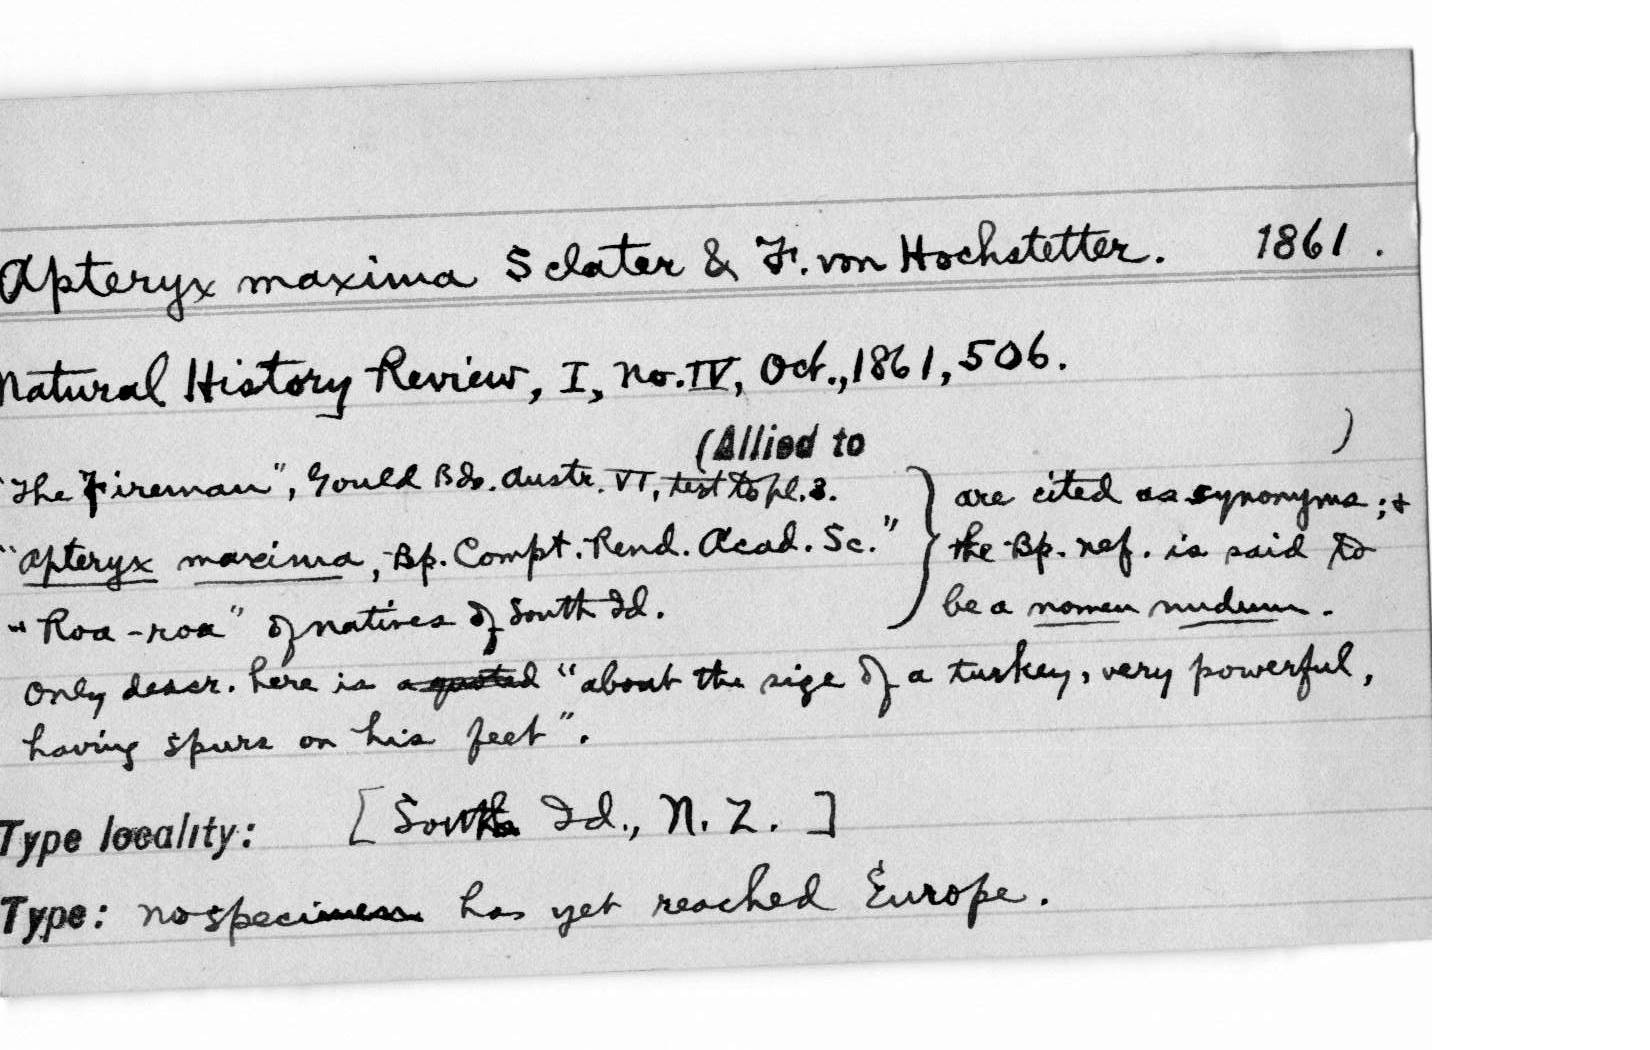 Apteryx maxima Sclater & F. von Hochstetter. 1861.
Natural History Review, I, no. IV, Oct., 1861, 506.
(Allied to )
"The Fireman", Gould Bds. Austr. VI, text to pl. 3.
"Apteryx maxima, Bp. Compt. Rend. Acad. Sc."
"Roa-roa" of natives of South Id.
are cited as synonyms; &
the Bp. ref. is said to
be a nomen nudum.
Only descr. here is a quoted "about the size of a turkey, very powerful,
having spurs on his feet".
Type locality: [South Id., N. Z.]
Type: no specimen has yet reached Europe.